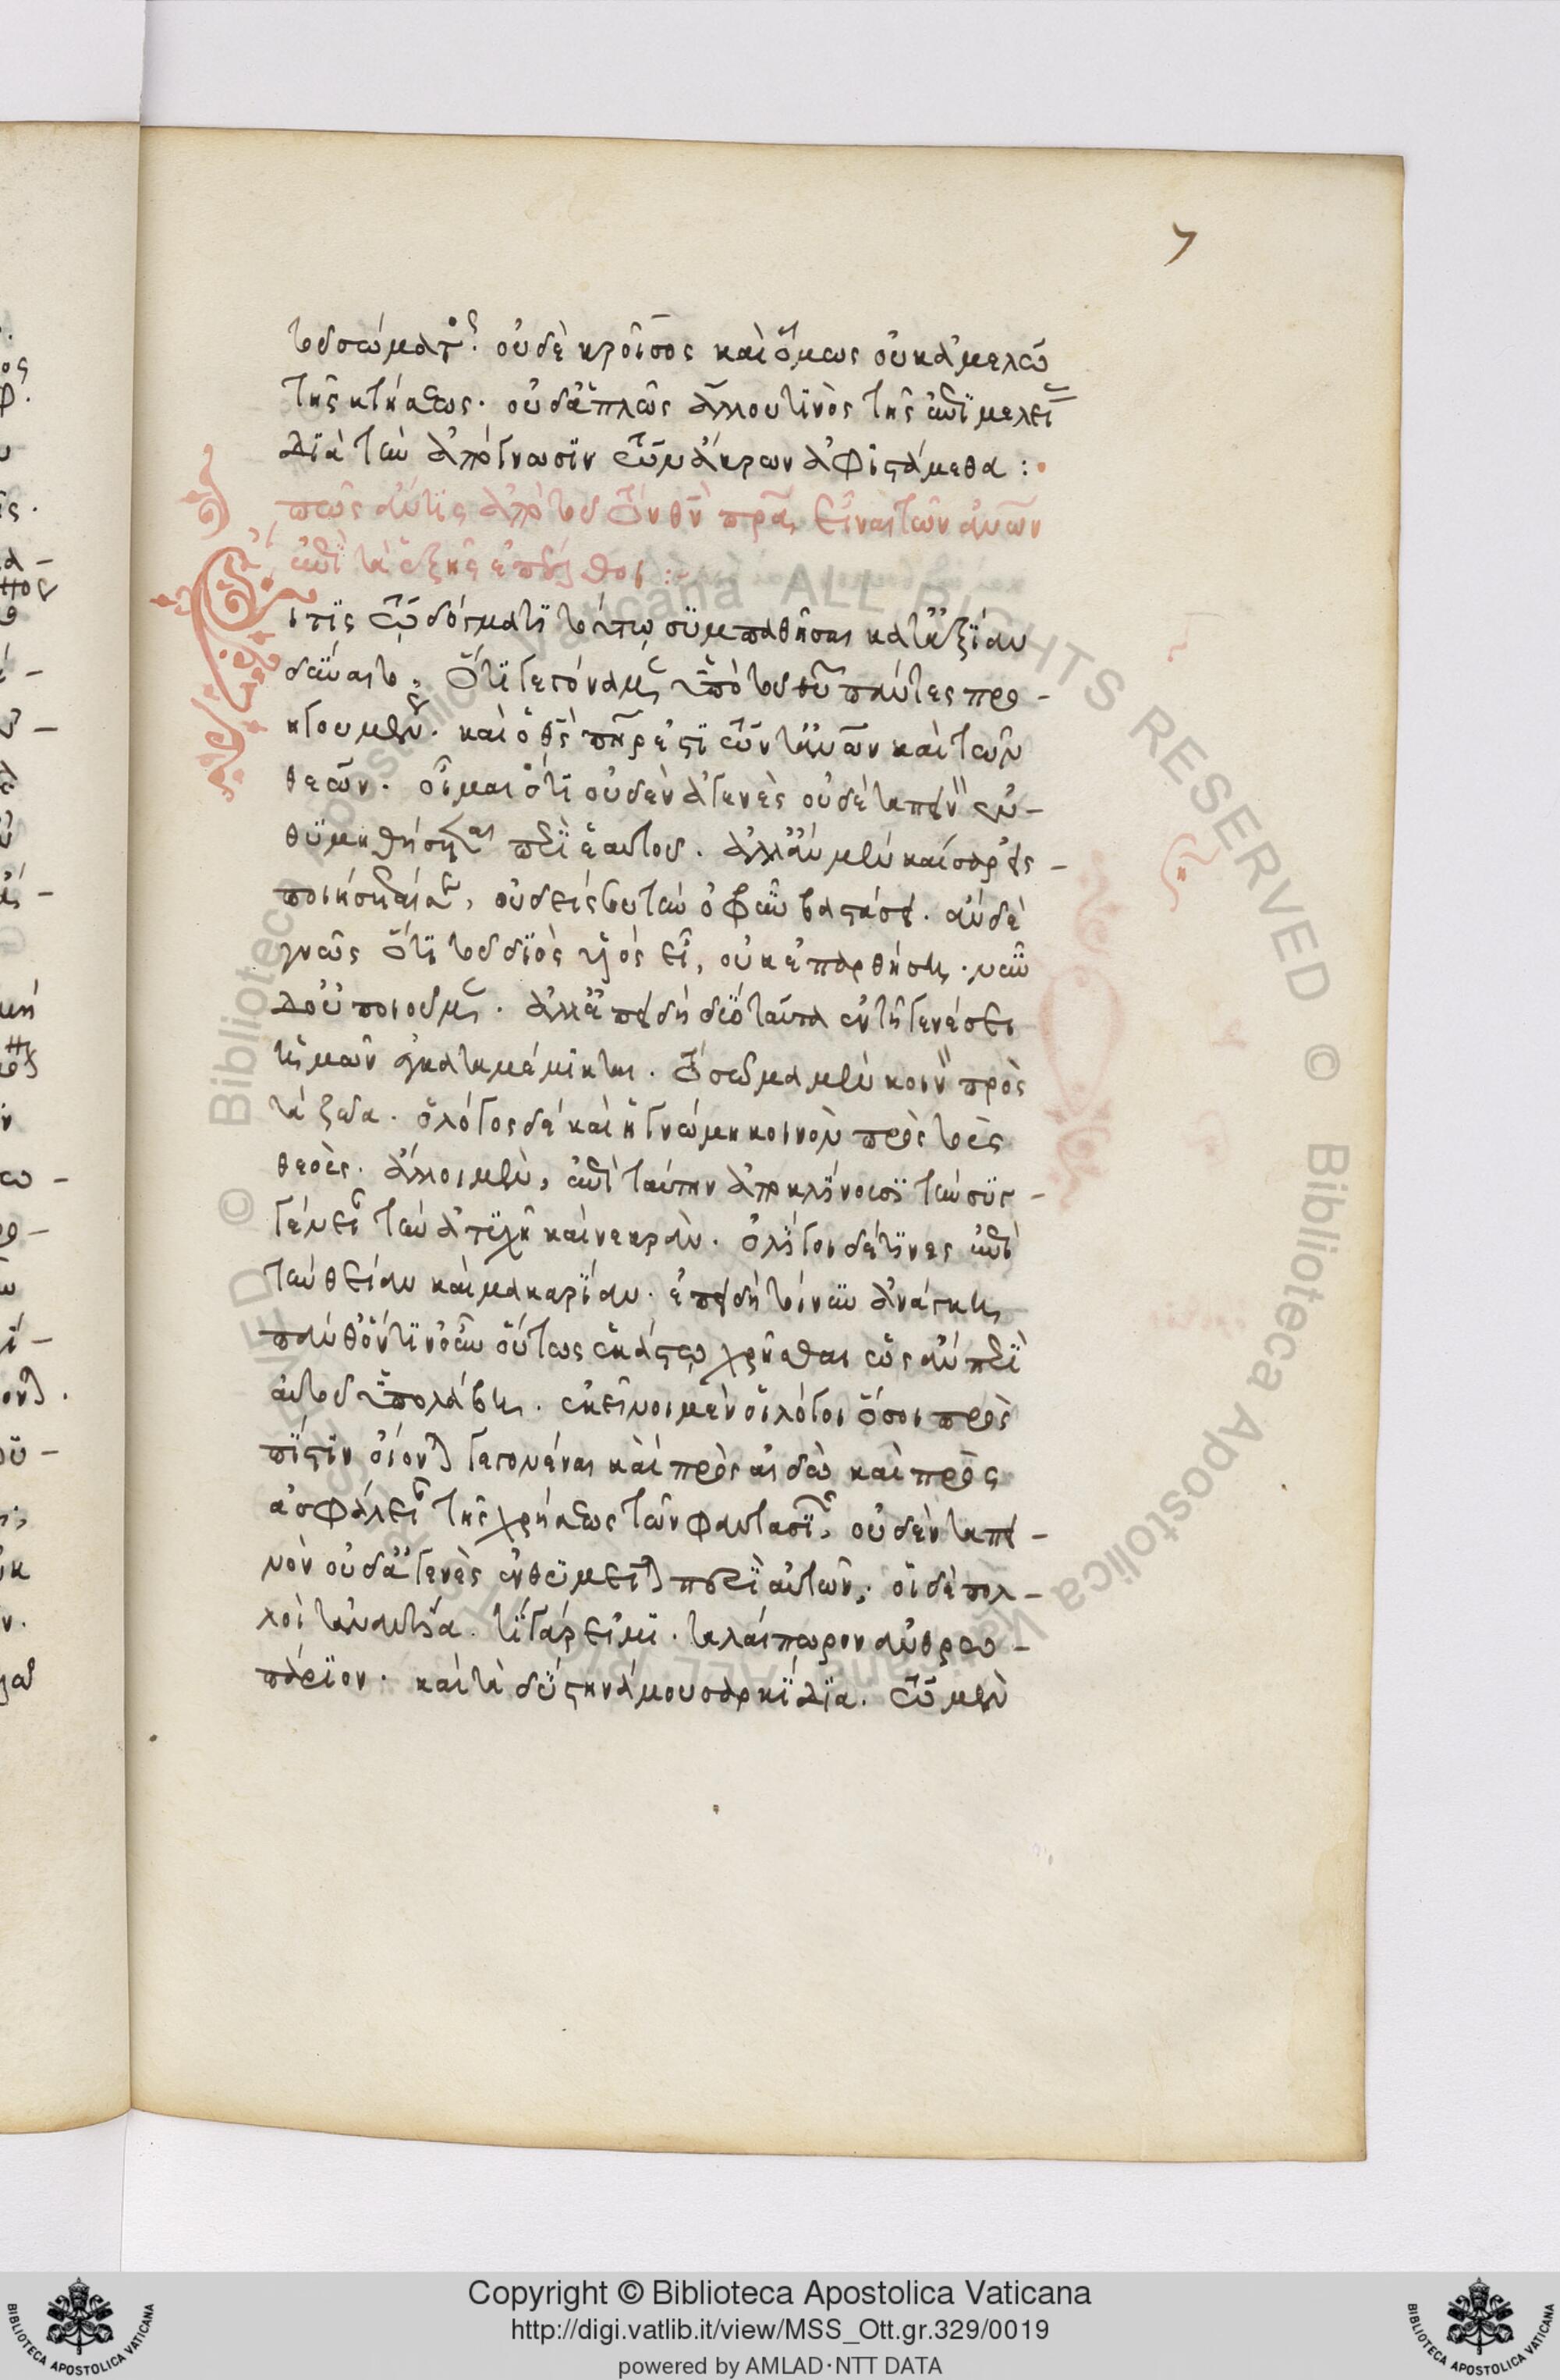 7
τοῦ σώματος. οὐδὲ κροῖσος καὶ ὅμως οὐκ ἀμελῶ
τῆς κτήσεως. οὐδ' ἁπλῶς ἄλλου τινὸς τῆς ἐπιμελείας
διὰ τὴν ἀπόγνωσιν τῶν ἄκρων ἀφιστάμεθα :
πῶς ἄν τις ἀπὸ τοῦ τὸν θν πρα εἶναι τῶν ανων
ἐπὶ τὰ ἑξῆς ἐπέλθοι :
Εἴ τις τῷ δόγματι τούτῳ συμπαθῆσαι κατ' ἀξίαν
δύναιτο, ὅτι γεγόναμεν ὑπὸ τοῦ θυ πάντες προ-
ηγουμένως. καὶ ὁ θς πηρ ἐστι τῶν τ' ανων καὶ τῶν
θεῶν. οἶμαι ὅτι οὐδὲν ἀγενὲς οὐδὲ ταπεινὸν ἐν-
θυμηθήσεται περὶ ἑαυτοῦ. ἀλλ' ἂν μὲν καῖσαρ εἰσ-
ποιήσηταί σε, οὐδείς σου τὴν ὀφρῦν βαστάσει. ἂν δὲ
γνῷς ὅτι τοῦ διὸς υἱὸς εἶ, οὐκ ἐπαρθήσῃ. νῦν
δ' οὐ ποιοῦμεν. ἀλλ' ἐπειδὴ δύο ταῦτα ἐν τῇ γενέσει
ἡμῶν ἐγκαταμέμικται. τὸ σῶμα μὲν κοινὸν πρὸς
τὰ ζῷα. ὁ λόγος δὲ καὶ ἡ γνώμη κοινὸν πρὸς τοὺς
θεούς. ἄλλοι μὲν, ἐπὶ ταύτην ἀποκλίνουσι τὴν συγ-
γένειαν τὴν ἀτυχῆ καὶ νεκράν. ὀλίγοι δέ τινες ἐπὶ
τὴν θείαν καὶ μακαρίαν. ἐπειδὴ τοίνυν ἀνάγκη
πάνθ' ὁντινοῦν οὕτως ἑκάστῳ χρῆσθαι ὡς ἂν περὶ
αὐτοῦ ὑπολάβῃ. ἐκεῖνοι μὲν οἱ λόγοι ὅσοι πρὸς
πίστιν οἴονται γεγονέναι καὶ πρὸς αἰδῶ καὶ πρὸς
ἀσφάλειαν τῆς χρήσεως τῶν φαντασιῶν, οὐδὲν ταπει-
νὸν οὐδ' ἀγενὲς ἐνθυμεῖται περὶ αὐτῶν. οἱ δὲ πολ-
λοὶ τἀναντία. τί γάρ εἰμι. ταλαίπωρον ἀνθρω-
πάριον. καὶ τὰ δύστηνά μου σαρκίδια. τῷ μὲν
Copyright © Biblioteca Apostolica Vaticana
http://digi.vatlib.it/view/MSS_Ott.gr.329/0019
powered by AMLAD·NTT DATA